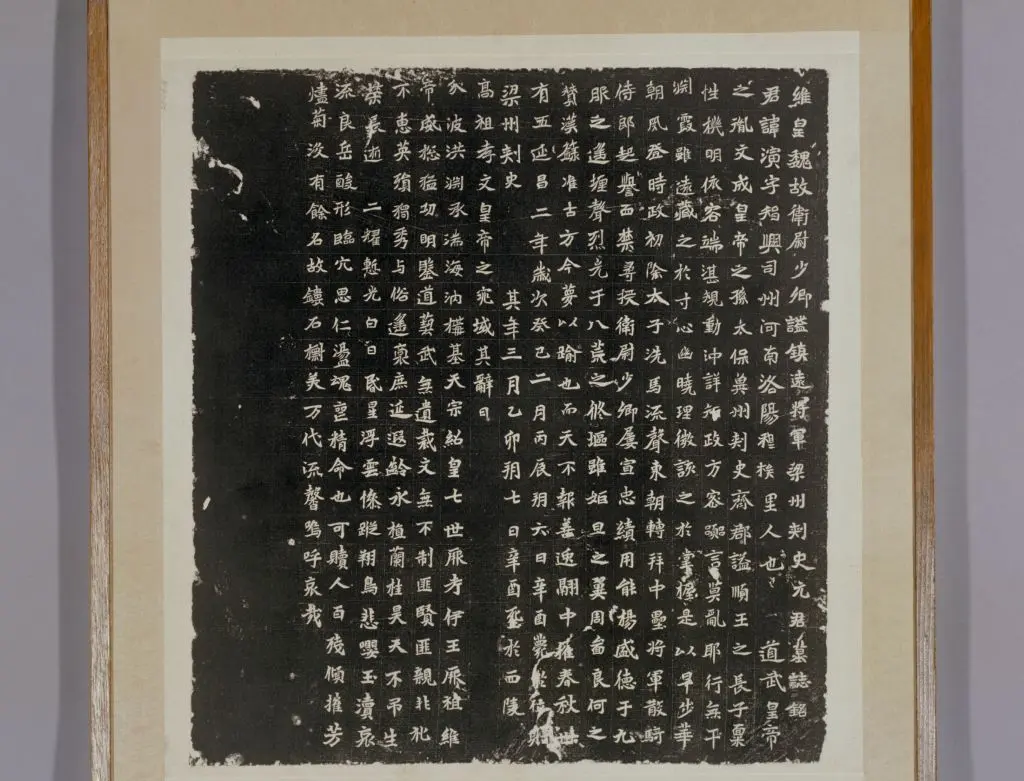 維皇魏故衛尉少卿謚鎮遠將軍梁州刾史元君墓誌銘
君諱演字智興司州河南洛陽穆族里人也 道武皇帝
之胤文成皇帝之孫太保冀州刾史齊郡謚順王之長子稟
性機明依容端湛規動沖詳知政方容謳言莫亂耶行無干
渕霞雖遠藏之於寸心幽曉理微談之於掌握是以早步華
朝夙登時政初除太子洗馬流聲東朝轉拜中壘將軍散騎
侍郎起轝西禁尋授衛尉少卿屢宣忠績用能楊盛德于九
服之遙堰聲烈光于八荒之脩塸雖姤旦之翼周畜良何之
贊漢雄准古方今蔑以踰也而天不報善逸翮中摧春秋卅
有五延昌二年歲次癸巳二月丙辰朔六日辛酉薨於位贈
梁州刾史 其年三月乙卯朔七日辛酉窆於西陵
高祖孝文皇帝之兆域其辭曰
分波洪渕承流海汭構基天宗紹皇七世厥考伊王厥祖維
帝盛懋猶功明鑒道藝武無遺裁文無不制匪賢匪親非礼
不惠英殞獨秀与俗遙褰庶延遐齡永植蘭桂昊天不弔生
榮長逝二耀慙光白日昏星浮雲條蹤翔鳥悲嚶玉瀆哀
流良岳酸形臨穴思仁盪魂喪精命也可贖人百殘傾摧芳
燼蘭沒有餘名故鏤石樹美万代流馨嗚呼哀哉